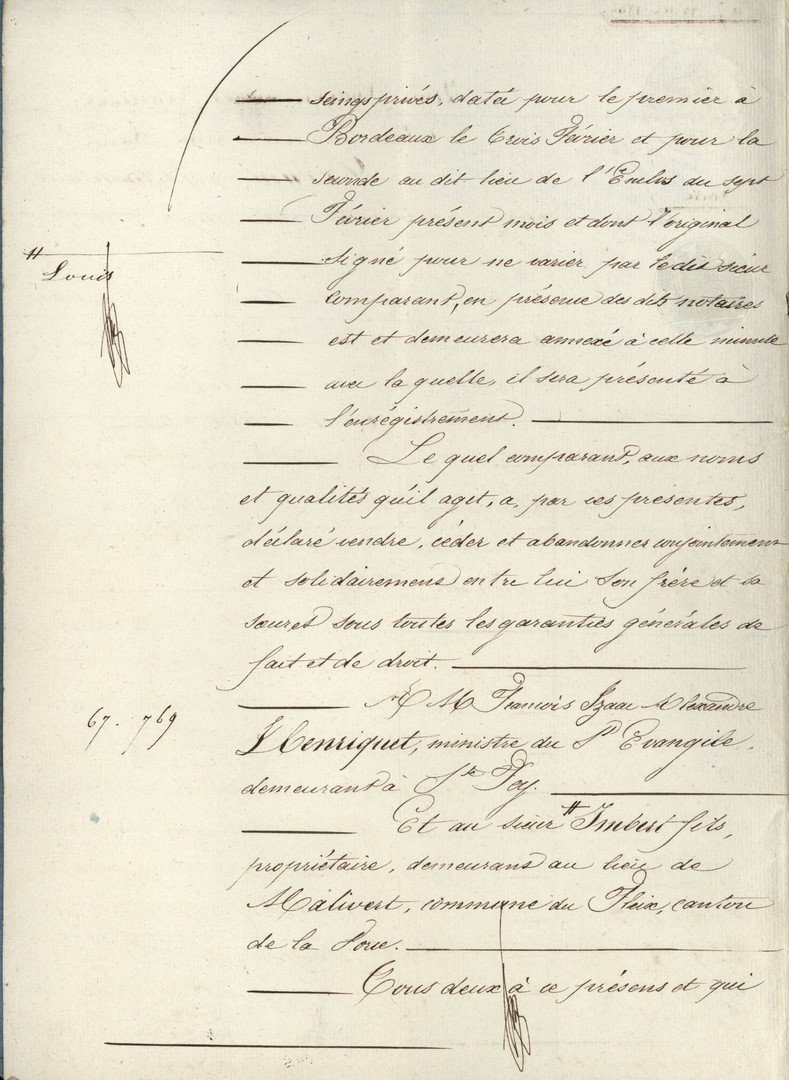 seings privés, datée pour le premier à
Bordeaux le trois Février et pour la
seconde au dit lieu de l'Enclos du sept
Février présent mois et dont l'original
signé pour ne varier par le dit sieur
comparant, en présence des dits notaires
est et demeurera annexé à cette minute
avec laquelle, il sera présenté à
l'enrégistrement.
Le quel comparant, aux noms
et qualités qu'il agit, a, par ces présentes,
déclaré vendre, céder et abandonner conjointement
et solidairement entre lui son frère et sa
soeur et sous toutes les garanties générales de
fait et de droit.
À M François Izaac Alexandre
Henriquet, ministre du St Evangile,
demeurant à Ste Foy.
Et au sieur # Imbert fils,
propriétaire, demeurant au lieu de
Malivert, commune du Fleix, canton
de la Force.
Tous deux à ce présens et qui
# Louis
67. 769